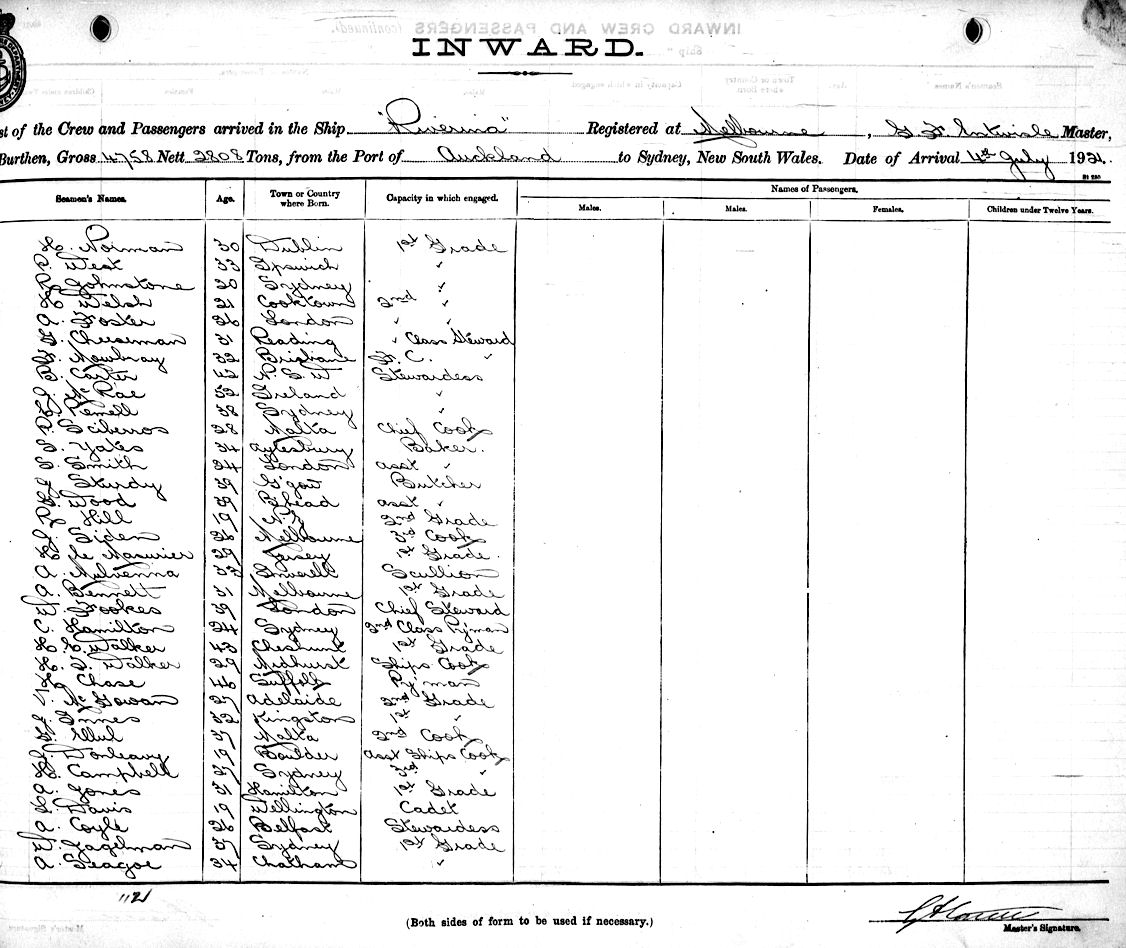 INWARD CREW AND PASSENGERS (continued).
INWARD.
st of the Crew and Passengers arrived in the Ship "Riverina" Registered at Melbourne, G F Entwisle Master,
Burthen, Gross 4758 Nett 2808 Tons, from the Port of Auckland to Sydney, New South Wales. Date of Arrival 4th July 1921.
Names of Passengers.
Seamen's Names. Age. Town or Country where Born. Capacity in which engaged. Males. Males. Females. Children under Twelve Years.
H. Norman 30 Dublin 1st Grade
West 33 Ipswich "
Johnstone 20 Sydney "
H Welsh 21 Cooktown 2nd "
A. Foster 26 London " "
Cheeseman 31 Reading " Class Steward
Mowbray 32 Brisbane F. C. "
Carter 42 N.S.W Stewardess
McRae 52 Ireland "
Pemell 38 Sydney "
Sciberros 28 Malta Chief Cook
S. Yates 34 Aylesbury Baker.
S. Smith 24 London asst "
J Sturdy 39 G'gow Butcher
Wood 39 B'head asst "
Hill 19 N.Z 2nd Grade
J. Siden 26 Melbourne 3rd Cook
H le Masurier 29 Jersey 1st Grade.
A. Mulvenna 32 Inverell Scullion
A. Bennett 31 Melbourne 1st Grade
W. Frookes 39 London Chief Steward
C. Hamilton 24 Sydney 2nd Class P'yman
H C. Walker 43 Cheshunt 1st Grade
H. S. Walker 29 Midhurst Ships Cook
H Chase 46 Suffolk P'y'man
V. McGowan 27 Adelaide 2nd Grade
J. Innes 32 Kingston 1st "
G. Ellul 37 Malta 2nd Cook
J. Donleavy 19 Boulder asst Ships Cook
H. Campbell 37 Sydney 3rd "
A. Jones 31 Hamilton 1st Grade
Davis 19 Wellington Cadet
A. Coyle 26 Belfast Stewardess
W. Fagelman 37 Sydney 1st Grade
A. Seagoe 34 Chatham "
(Both sides of form to be used if necessary.)
Master's Signature.